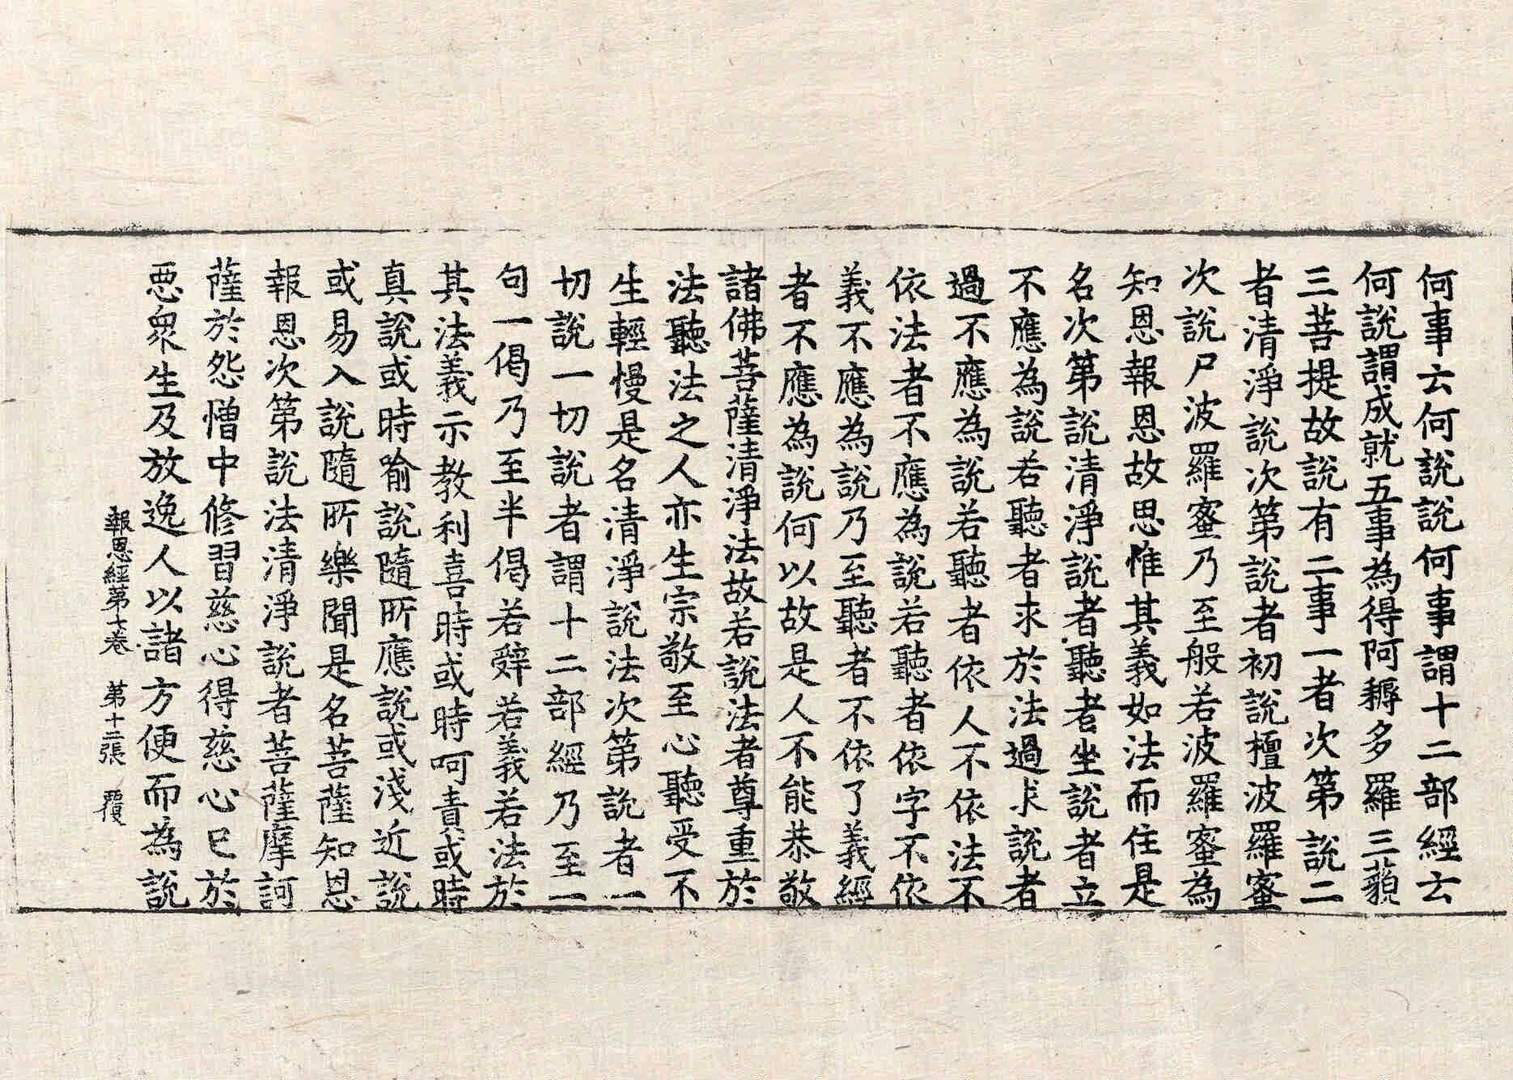 何事云何說說何事謂十二部經云
何說謂成就五事為得阿耨多羅三藐
三菩提故說有二事一者次第說二
者清淨說次第說者初說檀波羅蜜
次說尸波羅蜜乃至般若波羅蜜為
知恩報恩故思惟其義如法而住是
名次第說清淨說者聽者坐說者立
不應為說若聽者求於法過求說者
過不應為說若聽者依人不依法不
依法者不應為說若聽者依字不依
義不應為說乃至聽者不依了義經
者不應為說何以故是人不能恭敬
諸佛菩薩清淨法故若說法者尊重於
法聽法之人亦生宗敬至心聽受不
生輕慢是名清淨說法次第說者一
切說一切說者謂十二部經乃至一
句一偈乃至半偈若辤若義若法於
其法義示教利喜時或時呵責或時
真說或時喻說隨所應說或淺近說
或易入說隨所樂聞是名菩薩知恩
報恩次第說法清淨說者菩薩摩訶
薩於怨憎中修習慈心得慈心已於
惡眾生及放逸人以諸方便而為說
報恩經第七卷 第十二張 覆